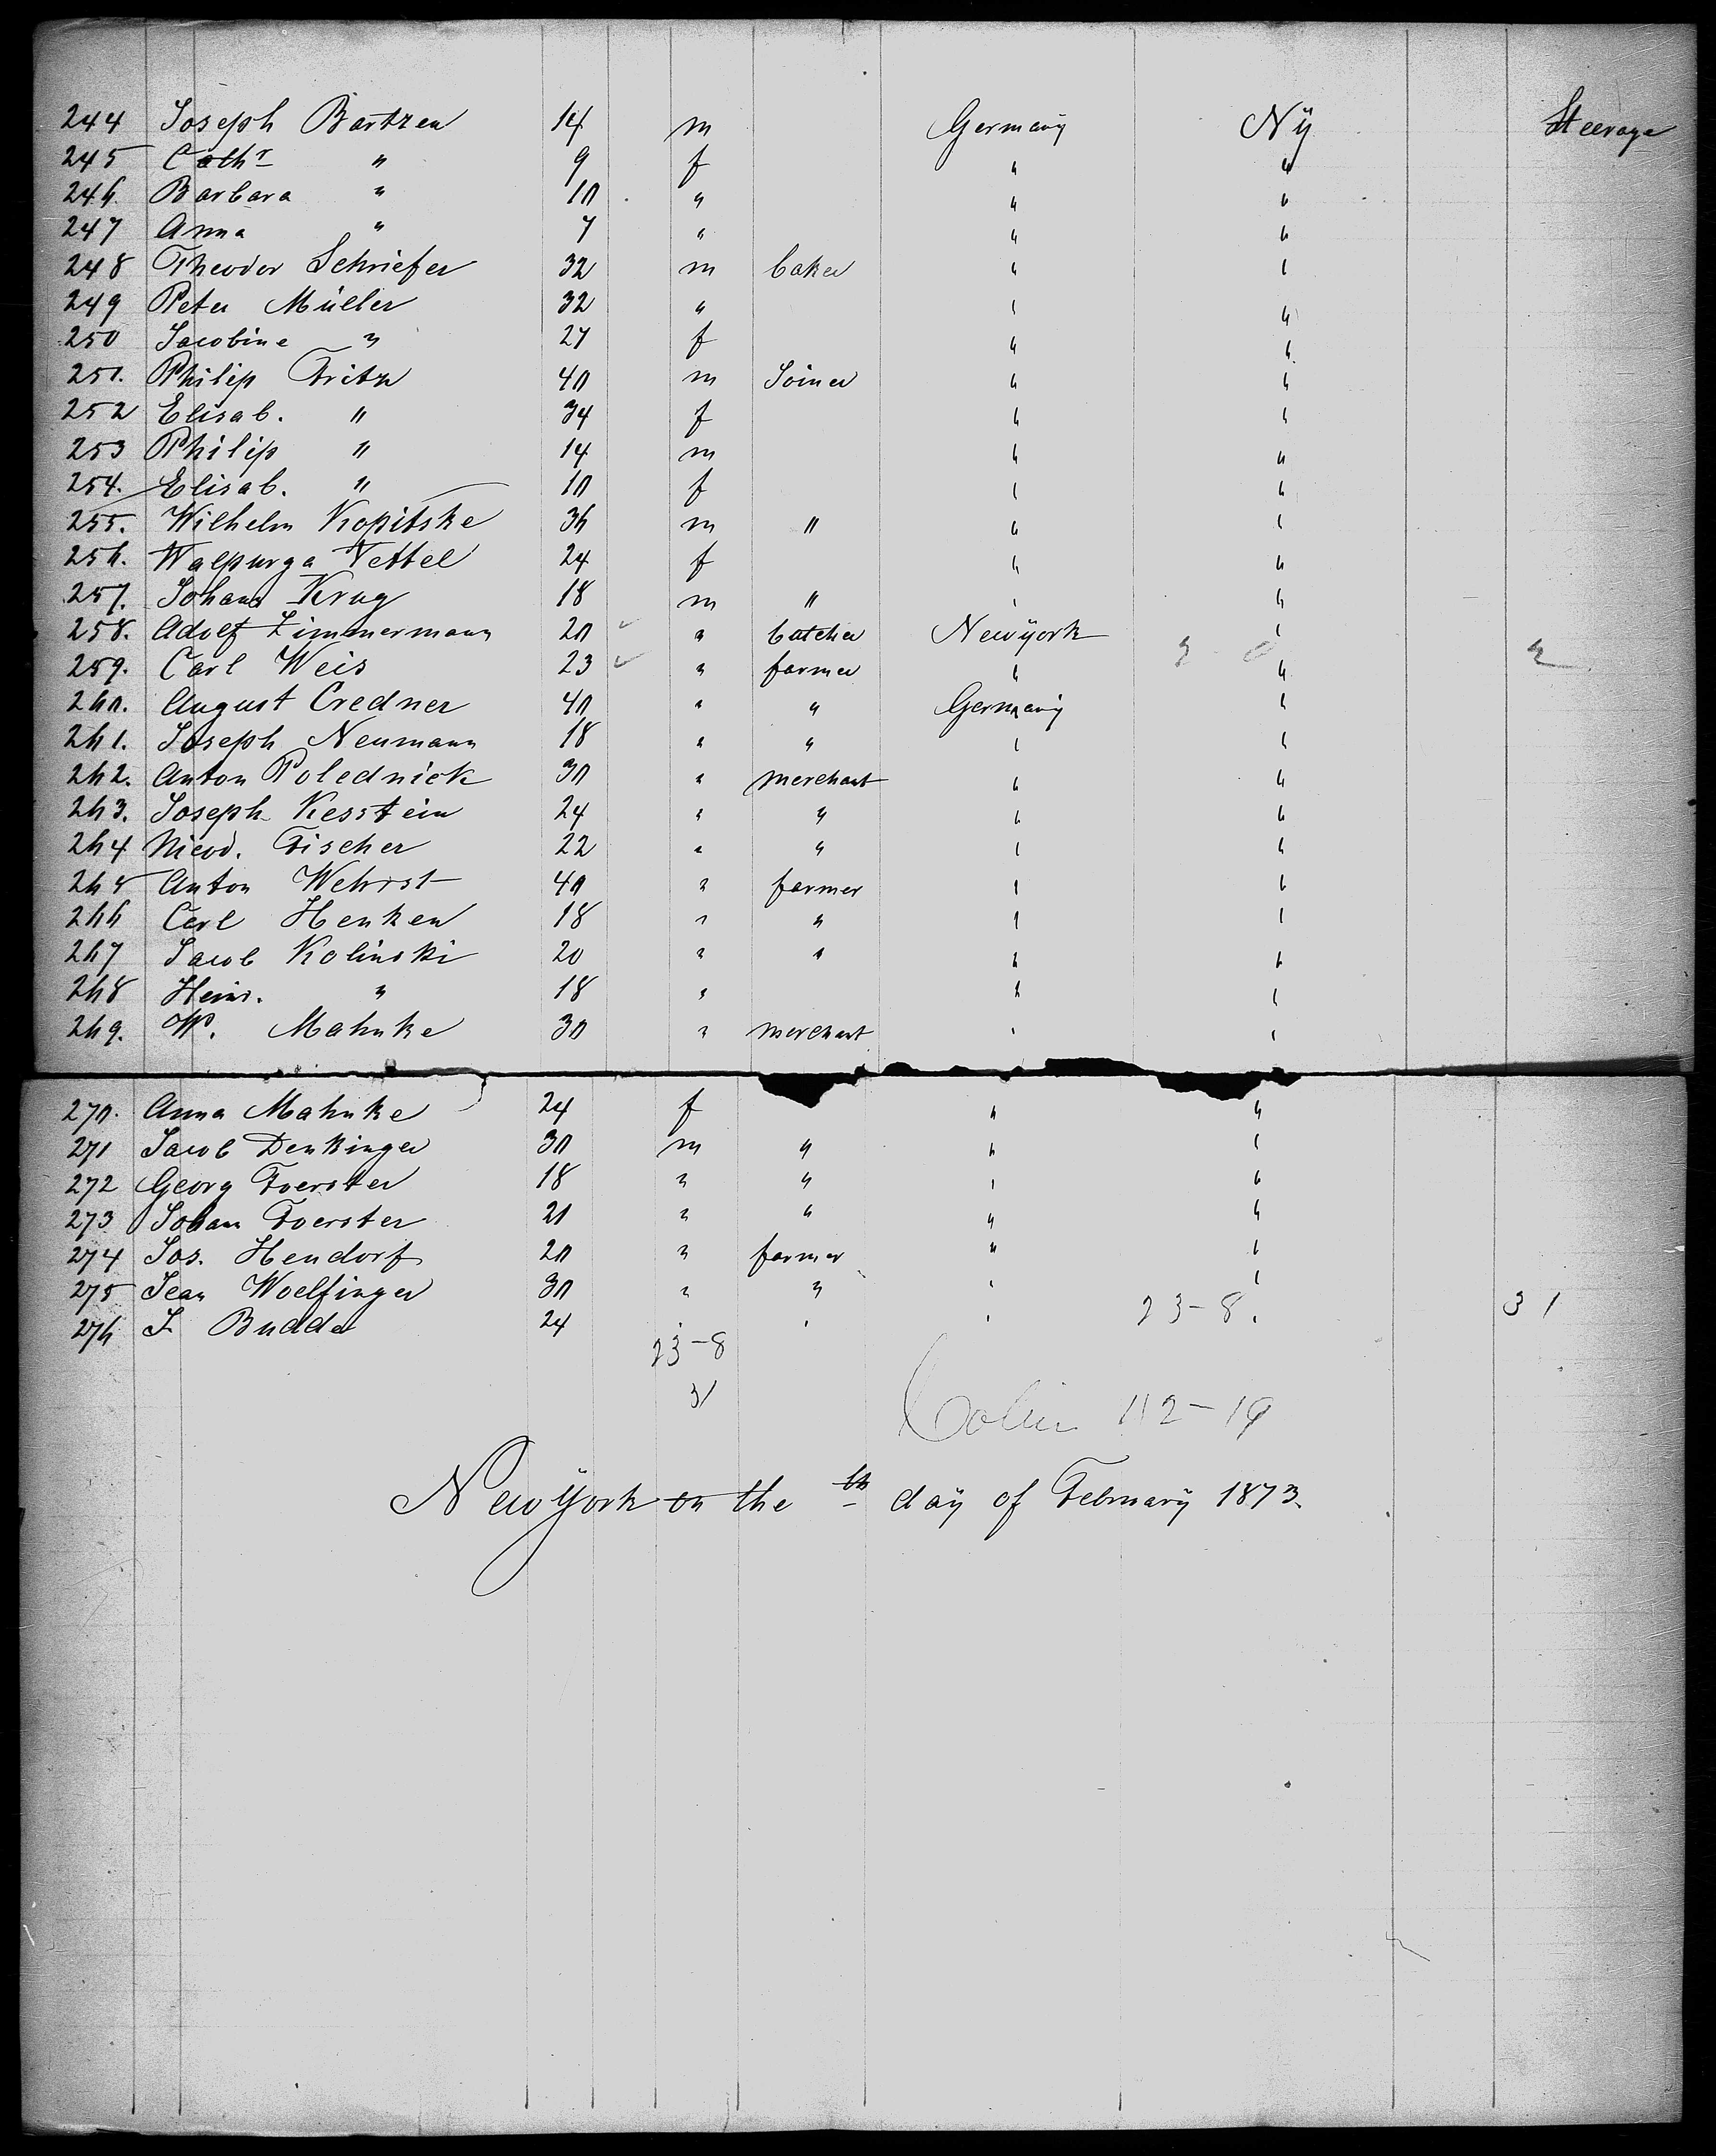 244 Joseph Bartzen 14 m Germany Ny Steerage
245 Cathr " 9 f " "
246. Barbara " 10 " " "
247 Anna " 7 " " "
248 Theodor Schriefer 32 m baker " "
249 Peter Müller 32 " " "
250 Jacobine " 27 f " "
251. Philip Fritz 40 m Joiner " "
252 Elisab. " 34 f " "
253 Philip " 14 m " "
254. Elisab. " 10 f " "
255. Wilhelm Kopitske 36 m " " "
256. Walpurga Vettel 24 f " "
257. Johann Krug 18 m " " "
258. Adolf Zimmermann 20 " butcher Newyork "
259. Carl Weis 23 " farmer " "
260. August Credner 40 " " Germany "
261. Joseph Neumann 18 " " " "
262. Anton Polednick 30 " merchant " "
263. Joseph Kesstein 24 " " " "
264 Nicod. Fischer 22 " " " "
265 Anton Wehrst 40 " farmer " "
266 Carl Henken 18 " " " "
267 Jacob Kolinski 20 " " " "
268 Heinr. " 18 " " "
269. W. Mahnke 30 " merchant " "
270. Anna Mahnke 24 f " "
271 Jacob Denkinger 30 m " " "
272 Georg Foerster 18 " " " "
273 Johann Foerster 21 " " " "
274 Jos. Hendorf 20 " farmer " "
275 Jean Woelfinger 30 " " " "
276 J. Budde 24 " " " 23-8. 31
23-8
31
112-19
Newyork on the th day of February 1873.